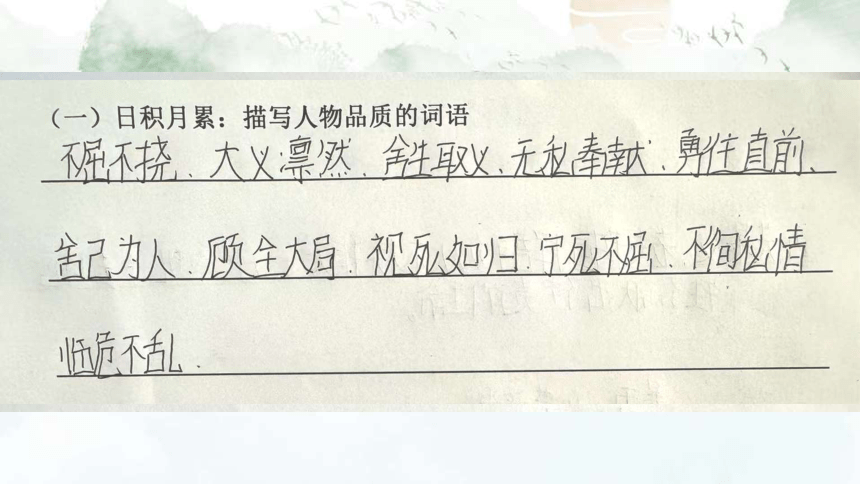 （一）日积月累：描写人物品质的词语
不屈不挠、大义凛然、舍生取义、无私奉献、勇往直前、
舍己为人、顾全大局、视死如归、宁死不屈、不徇私情
临危不乱、